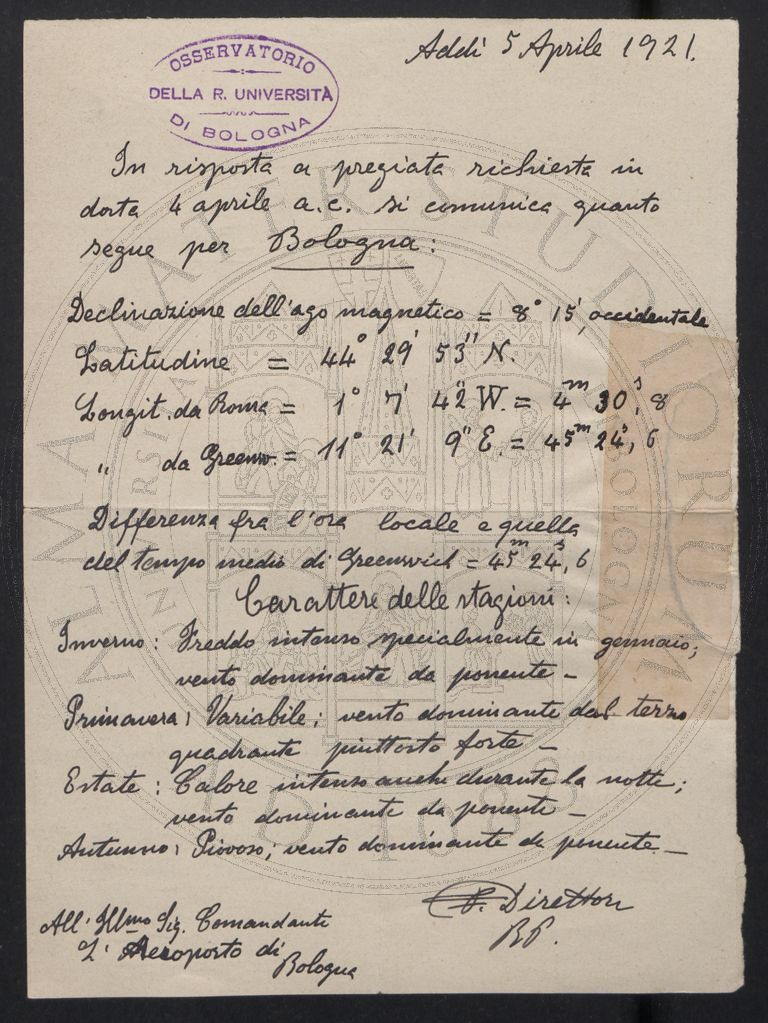 OSSERVATORIO
DELLA R. UNIVERSITÀ
DI BOLOGNA
Addì 5 Aprile 1921.
In risposta a pregiata richiesta in
data 4 aprile a.c. si comunica quanto
segue per Bologna:
Declinazione dell'ago magnetico = 8° 15', occidentale
Latitudine = 44° 29' 53" N.
Longit. da Roma = 1° 7' 42" W. = 4m 30s, 8
" da Greenw. = 11° 21' 9" E. = 45m 24s, 6
Differenza fra l'ora locale e quella
del tempo medio di Greenwich = 45m 24s, 6
Carattere delle stagioni:
Inverno: Freddo intenso specialmente in gennaio;
vento dominante da ponente –
Primavera: Variabile; vento dominante dal terzo
quadrante piuttosto forte –
Estate: Calore intenso anche durante la notte;
vento dominante da ponente –
Autunno: Piovoso; vento dominante da ponente –
Direttore
All' Illmo Sig. Comandante
L' Aeroporto di
Bologna
ALMA MATER STUDIORUM